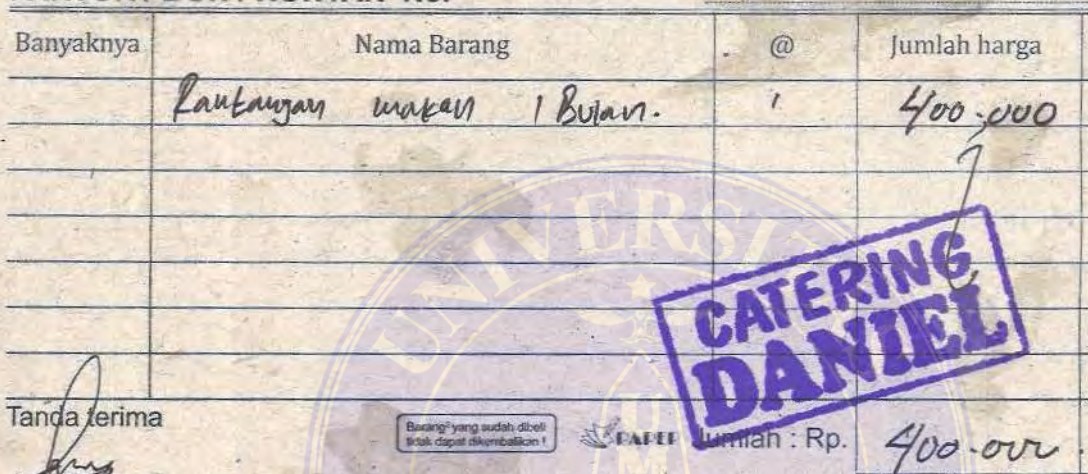 Banyaknya Nama Barang @ Jumlah harga
Rantangan makan 1 Bulan. 400.000
UNIVERSIT
CATERING
DANIEL
Tanda terima
Barang² yang sudah dibeli
tidak dapat dikembalikan !
PAPER
Jumlah : Rp. 400.000